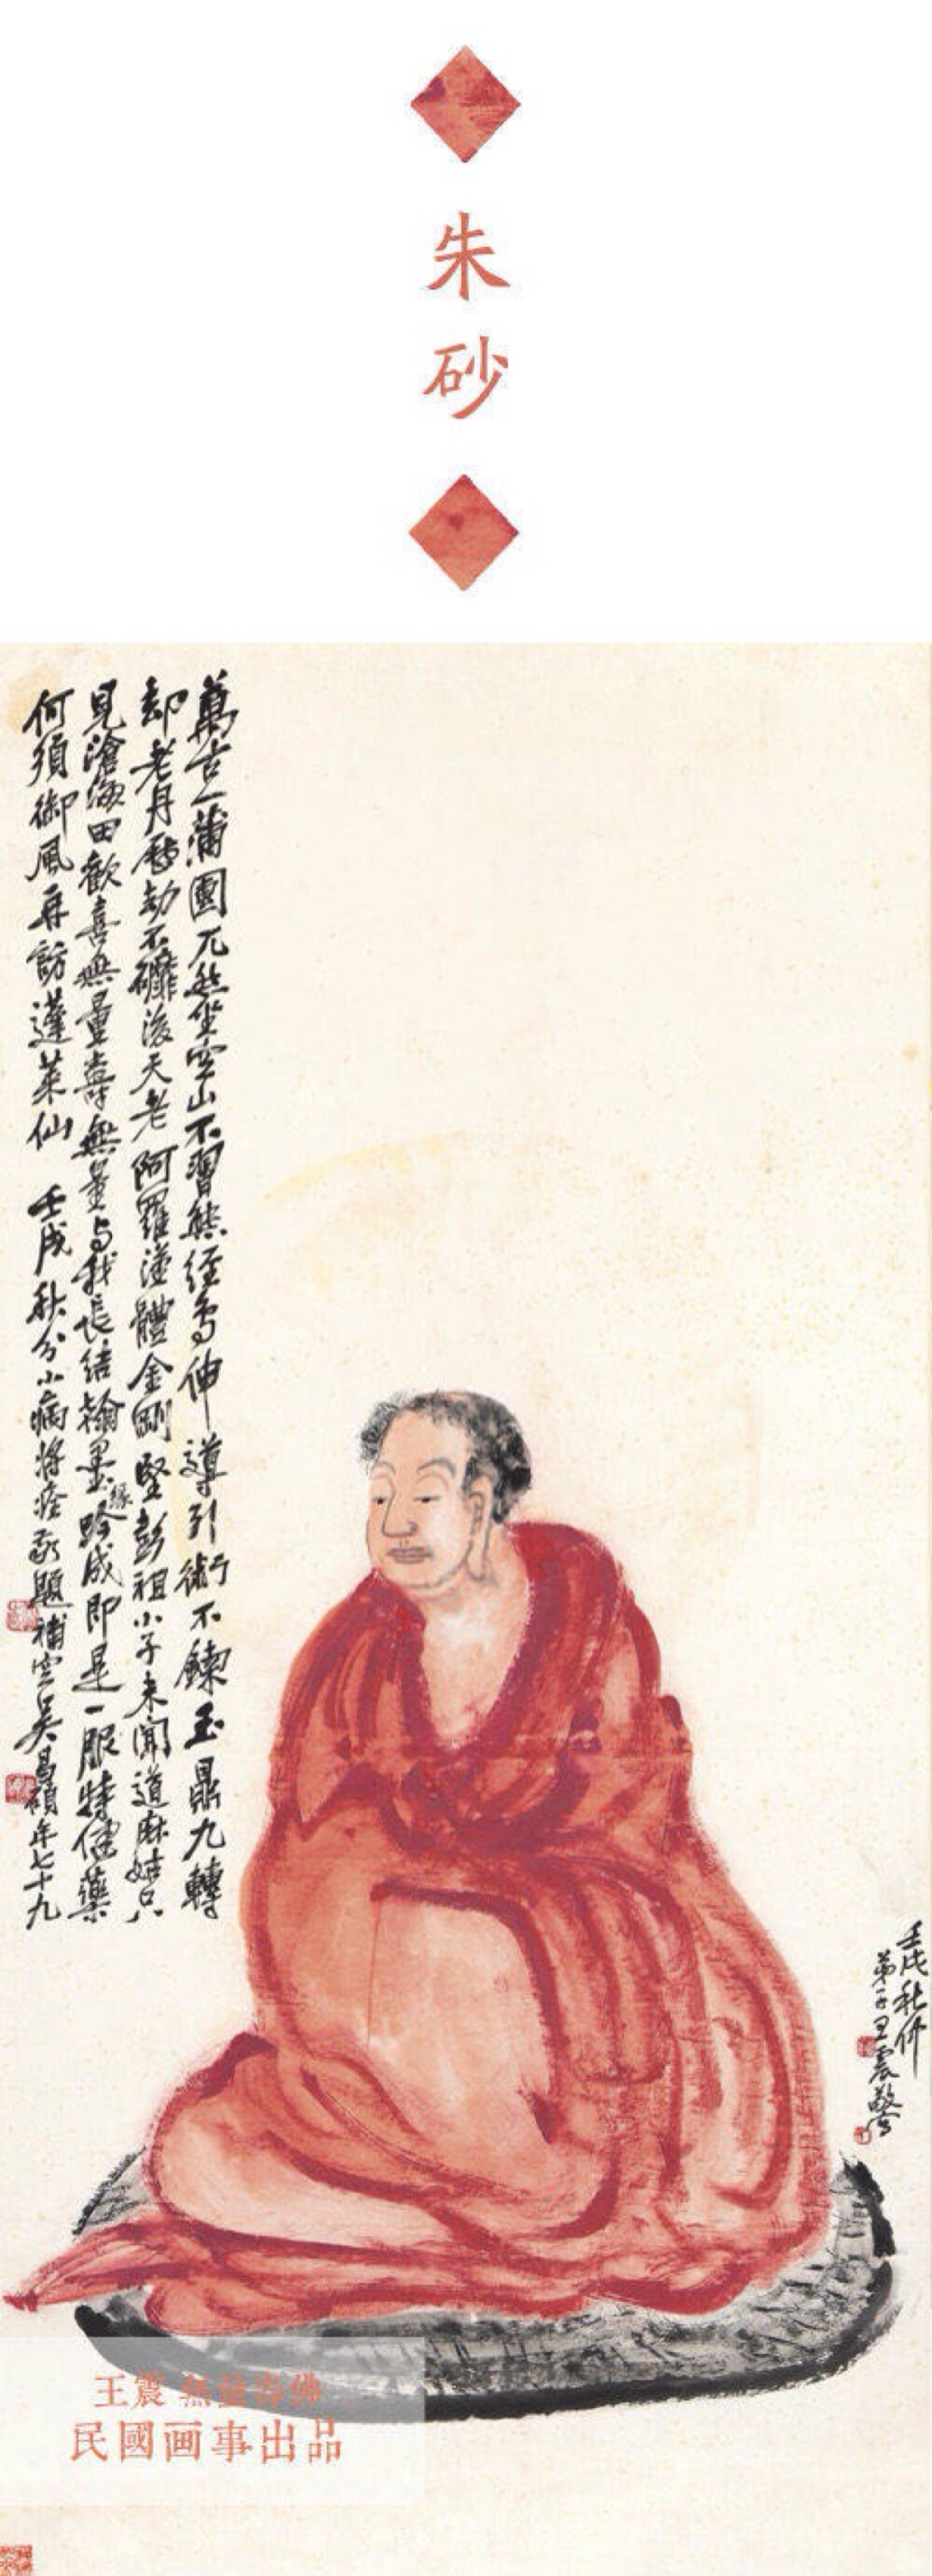 朱砂
萬古一蒲團兀然坐空山不習熊經鳥伸導引術不鍊玉鼎九轉
却老丹歷劫不礙後天老阿羅漢體金剛堅彭祖小子未聞道麻姑只
見滄海田歡喜無量壽無量與我長結翰墨緣成即是一服特健藥
何須御風再訪蓬萊仙 壬戌秋分小病將痊敬題補空吳昌碩年七十九
壬戌秋仲
弟子王震敬寫
王震 無量壽佛
民國画事出品